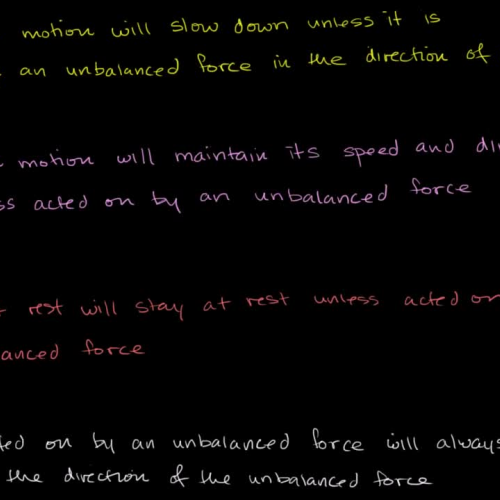 motion will slow down unless it is
an unbalanced force in the direction of
motion will maintain its speed and
acted on by an unbalanced force
rest will stay at rest unless acted on
force
on by an unbalanced force will always
the direction of the unbalanced force